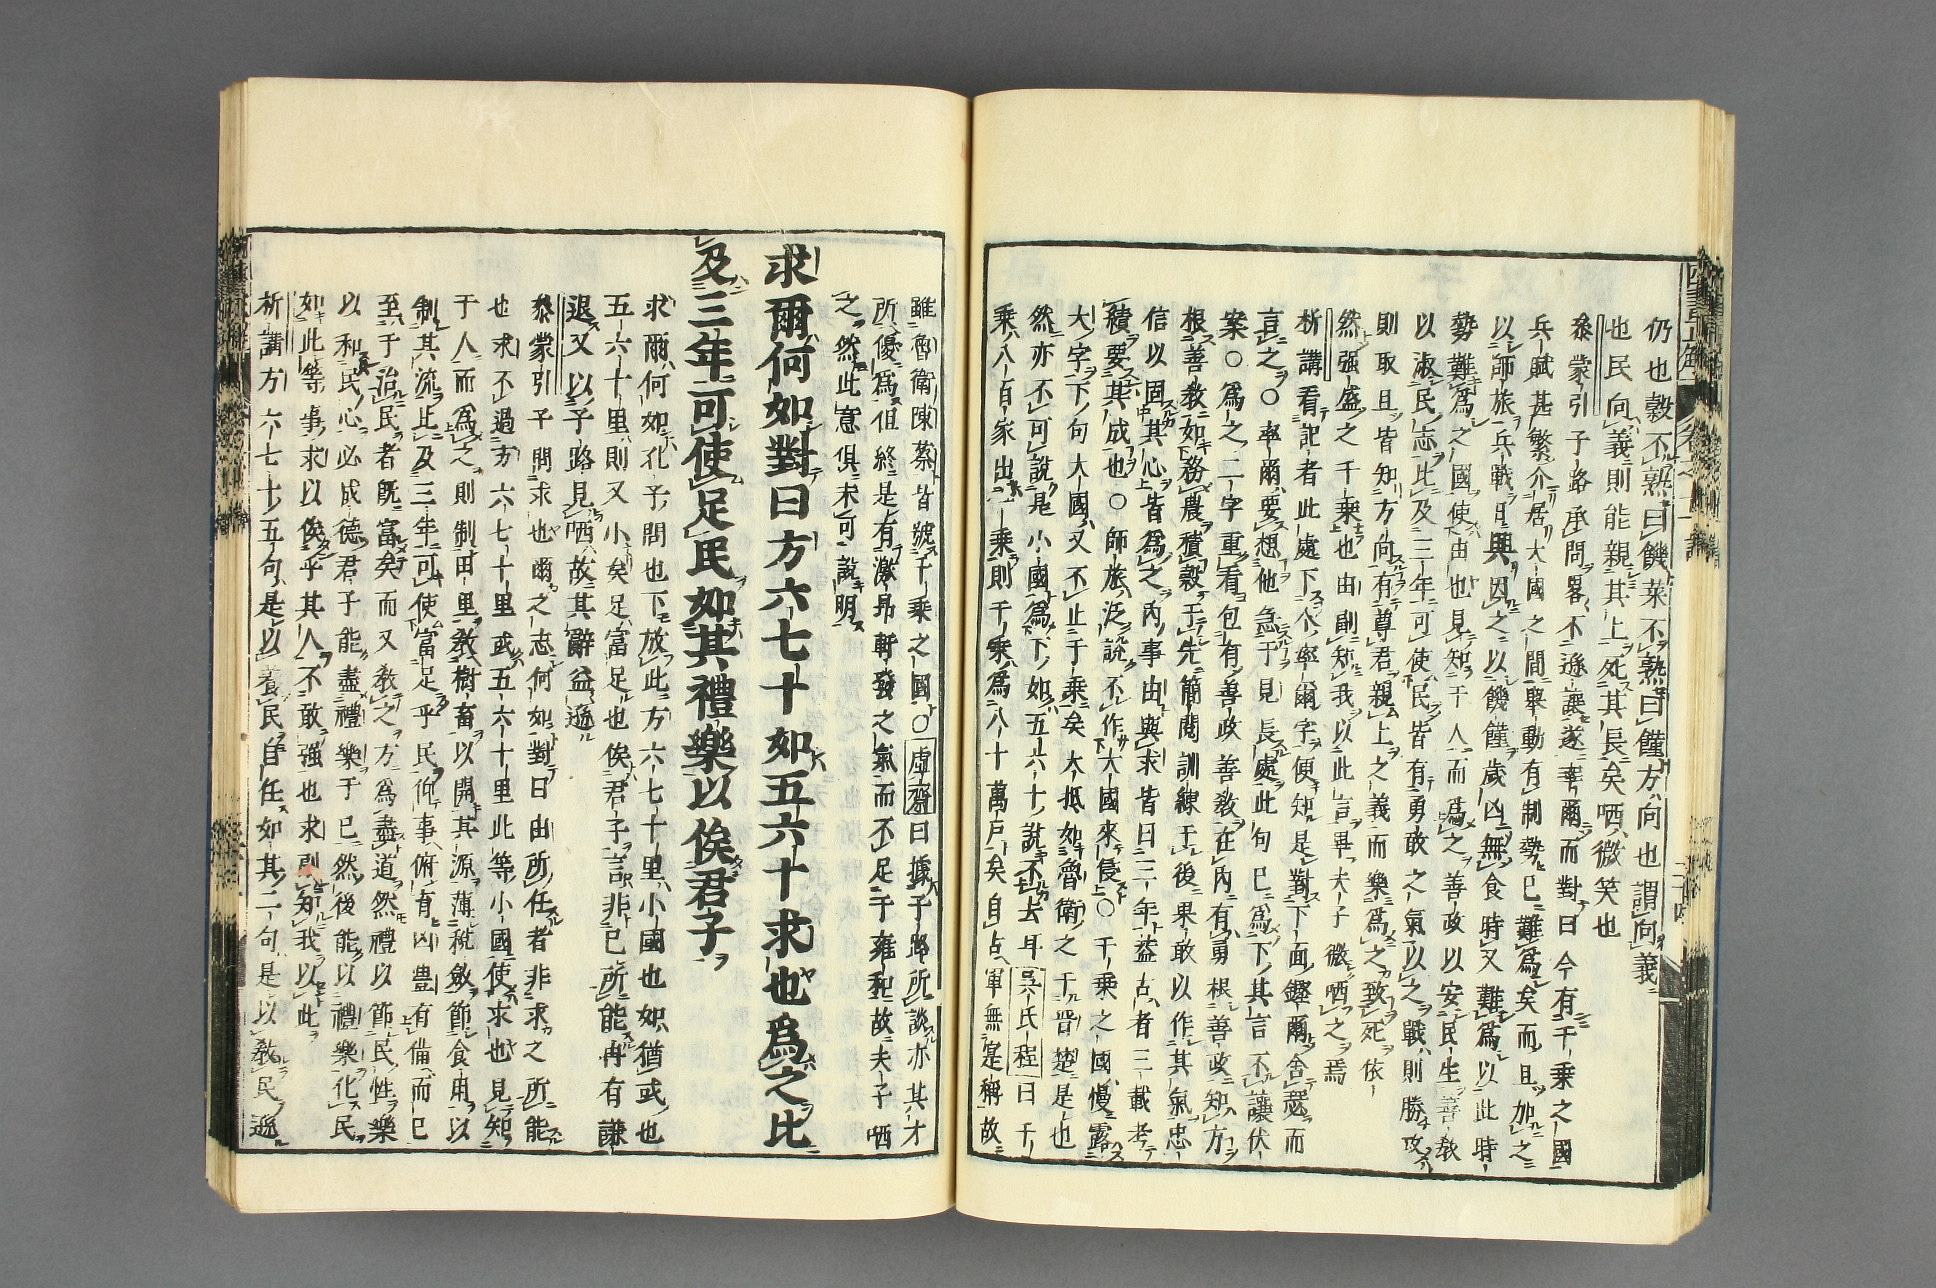 仍也穀不熟曰饑菜不熟曰饉方向也謂向義
也民向義則能親其上死其長矣哂微笑也
叅蒙引子路承問畧不遜讓遂率爾而對曰今有千乘之國
兵賦甚繁介居大國之間舉動有制勢已難爲矣而且加之
以師旅兵戰日興因之以饑饉歲凶無食時又難爲以此時
勢難爲之國使由也見知于人而爲之善政以安民生善教
以淑民志比及三年可使民皆有勇敢之氣以之戰則勝攻
則取且皆知方向有尊君親上之義而樂爲之致死依
然强盛之千乘也由副知我以此言畢夫子微哂之焉
析講看記者此處下个率爾字便知是對下面鏗爾舍瑟而
言之○率爾要想他急于見長處此句已爲下其言不讓伏
案○爲之二字重看包有善政善教在內有勇根善政知方
根善教如務農積穀于先簡閱訓練于後果敢以作其氣忠
信以固其心皆爲之內事由與求皆曰三年葢古者三載考
績要其成也○師旅泛說不作大國來侵○千乘之國慢露
大字下句大國又不止于乘矣大抵如魯衛之于晉楚是也
然亦不可說是小國爲下如五六十說不去耳吳氏程曰千
乘八百家出一乘則千乘爲八十萬戶矣自占軍無寔稱故
雖魯衛陳蔡皆號千乘之國○虛齋曰據子路所談亦其才
所優爲但終是有激昻軒發之氣而不足于雍和故夫子哂
之然此意俱未可說明
求爾何如對曰方六七十如五六十求也爲之比
及三年可使足民如其禮樂以俟君子
求爾何如孔子問也下放此方六七十里小國也如猶或也
五六十里則又小矣足富足也俟君子言非已所能冉有謙
退又以子路見哂故其辭益遜
叅蒙引子問求也爾之志何如對曰由所任者非求之所能
也求不過方六七十里或五六十里此等小國使求也見知
于人而爲之則制田里教樹畜以開其源薄稅斂節食用以
制其流比及三年可使富足乎民仰事俯有凶豊有備而已
至于治民者旣富矣而又教之方爲盡道然禮以節民性樂
以和民心必成德君子能盡禮樂于已然後能以禮樂化民
如此等事求以俟乎其人不敢强也求副知我以此
析講方六七十五句是以養民自任如其二句是以教民遜